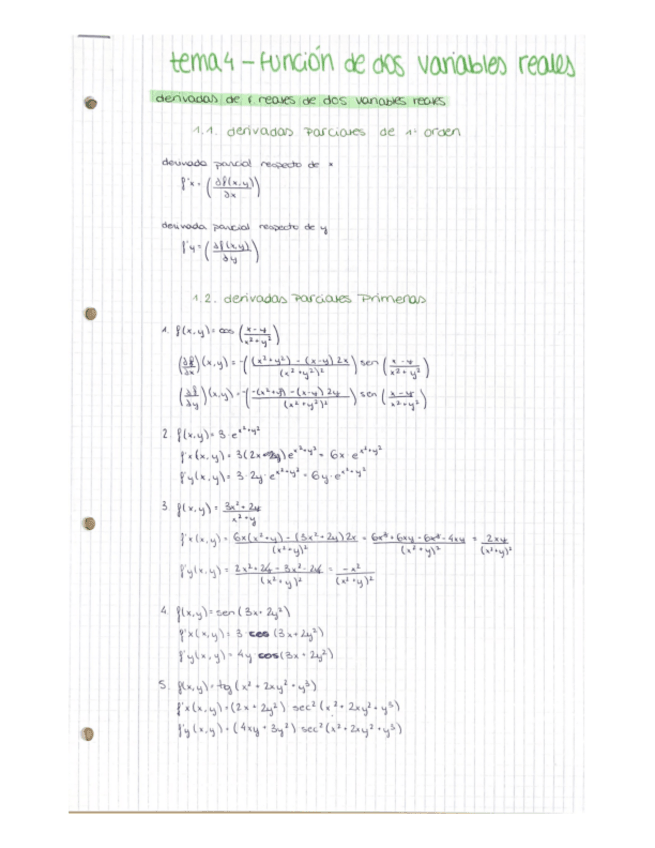 tema 4 - función de dos variables reales
derivadas de f. reales de dos variables reales
1.1. derivadas parciales de 1º orden
derivada parcial respecto de x
f'x = (∂f(x,y)/∂x)
derivada parcial respecto de y
f'y = (∂f(x,y)/∂y)
1.2. derivadas parciales primeras
1. f(x,y) = cos ((x-y)/(x²+y²))
(∂f/∂x)(x,y) = -(((x²+y²) - (x-y) 2x)/(x²+y²)²) sen ((x-y)/(x²+y²))
(∂f/∂y)(x,y) = -((-(x²+y²) - (x-y) 2y)/(x²+y²)²) sen ((x-y)/(x²+y²))
2. f(x,y) = 3·e^(x²+y²)
f'x(x,y) = 3(2x) e^(x²+y²) = 6x · e^(x²+y²)
f'y(x,y) = 3·2y·e^(x²+y²) = 6y·e^(x²+y²)
3. f(x,y) = (3x²+2y)/(x²+y)
f'x(x,y) = (6x(x²+y) - (3x²+2y)2x)/(x²+y)² = (6x³+6xy-6x³-4xy)/(x²+y)² = 2xy/(x²+y)²
f'y(x,y) = (2x²+2y-3x²-2y)/(x²+y)² = -x²/(x²+y)²
4. f(x,y) = sen (3x+2y²)
f'x(x,y) = 3·cos (3x+2y²)
f'y(x,y) = 4y·cos(3x+2y²)
5. f(x,y) = tg (x²+2xy²+y³)
f'x(x,y) = (2x+2y²) sec² (x²+2xy²+y³)
f'y(x,y) = (4xy+3y²) sec² (x²+2xy²+y³)